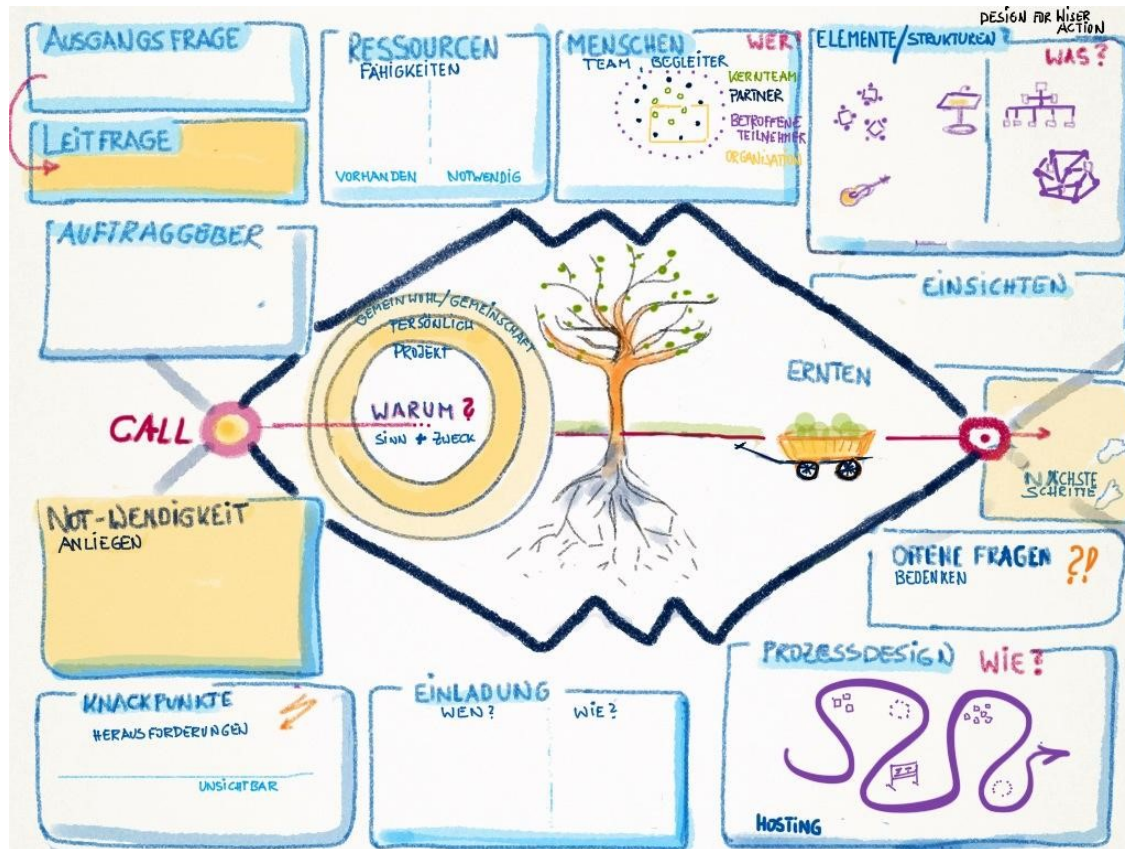 DESIGN FOR WISER
ACTION
AUSGANGSFRAGE
LEITFRAGE
RESSOURCEN
FÄHIGKEITEN
VORHANDEN
NOTWENDIG
MENSCHEN
WER?
TEAM, BEGLEITER
KERNTEAM
PARTNER
BETROFFENE
TEILNEHMER
ORGANISATION
ELEMENTE/STRUKTUREN?
WAS?
AUFTRAGGEBER
GEMEINWOHL/GEMEINSCHAFT
PERSÖNLICH
PROJEKT
WARUM?
SINN + ZWECK
CALL
ERNTEN
EINSICHTEN
NÄCHSTE
SCHRITTE
NOT-WENDIGKEIT
ANLIEGEN
OFFENE FRAGEN ?!
BEDENKEN
KNACKPUNKTE
HERAUSFORDERUNGEN
UNSICHTBAR
EINLADUNG
WEN?
WIE?
PROZESSDESIGN
WIE?
HOSTING